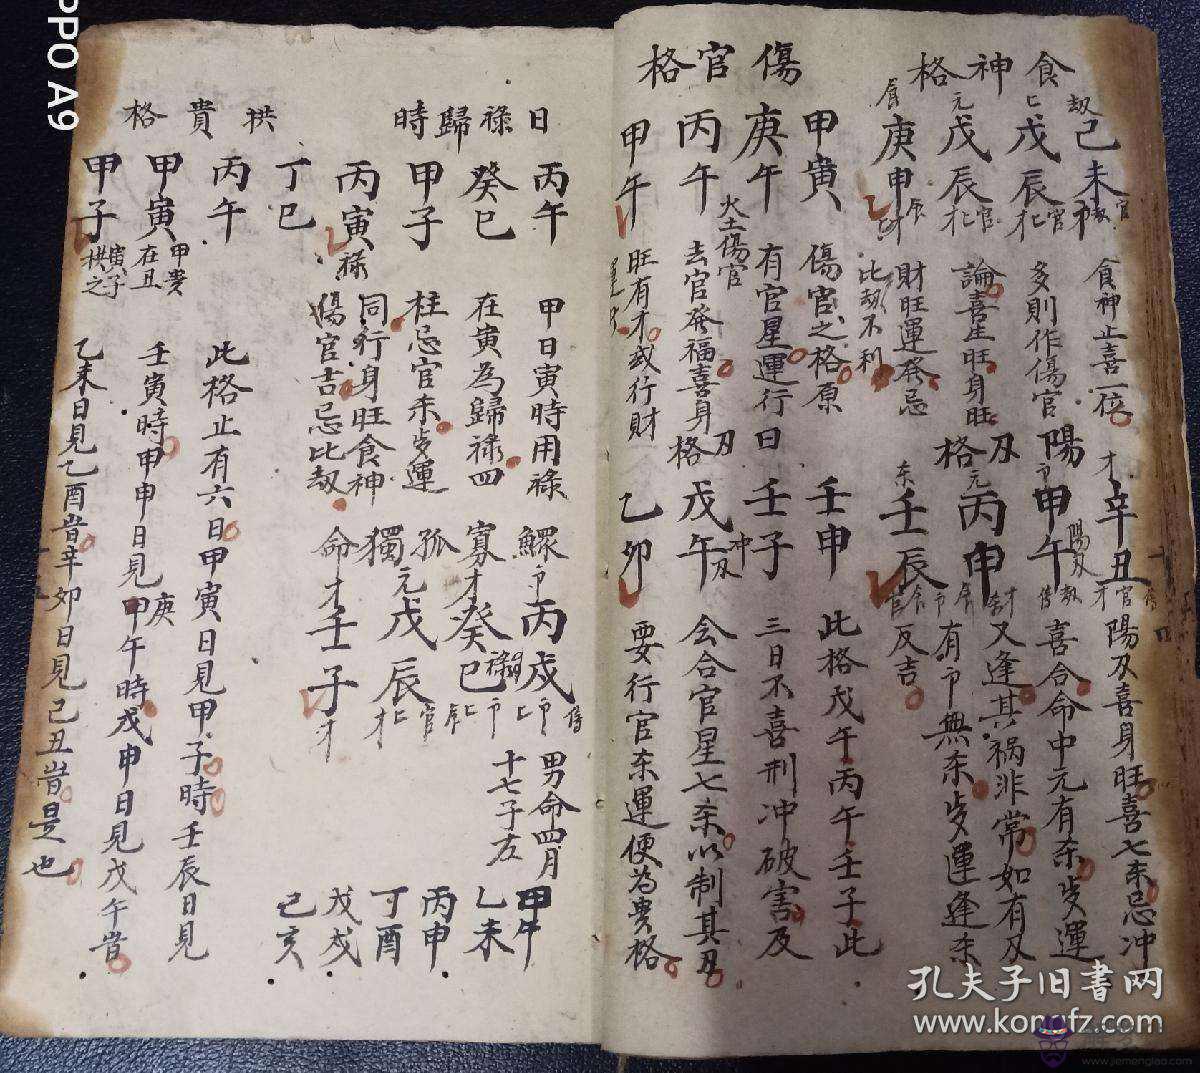 食神格
己未
戊辰
戊辰
庚申
食神止喜一位
多則作傷官
論喜生旺身旺
財旺運發忌
比劫不利
傷官格
甲寅
庚午
丙午
甲午
傷官之格原
有官星運行日
火土傷官
去官發福喜身
旺有才或行財
陽刃格
辛丑
甲午
丙申
壬辰
陽刃喜身旺喜七杀忌冲
喜合命中元有杀岁運
又逢其祸非常如有刃
有卩無杀岁運逢杀
反吉
刃格
壬申
壬子
戊午
乙卯
此格戊午丙午壬子此
三日不喜刑冲破害及
会合官星七杀以制其刃
要行官杀運便為貴格
日祿歸時
丙午
癸巳
甲子
丙寅
甲日寅時用祿
在寅為歸祿四
柱忌官杀岁運
同行身旺食神
傷官吉忌比劫
鰥寡孤獨命
丙戌
癸巳
戊辰
壬子
男命四月
十七子左
甲午
乙未
丙申
丁酉
戊戌
己亥
拱貴格
丁巳
丙午
甲寅
甲子
甲貴
在丑
寅子
拱之
此格止有六日甲寅日見甲子時壬辰日見
壬寅時甲申日見甲午時戊申日見戊午時
庚
乙未日見乙酉時辛卯日見己丑時是也
孔夫子旧書网
www.kongfz.com
www.jiemenglao.com
OPPO A9